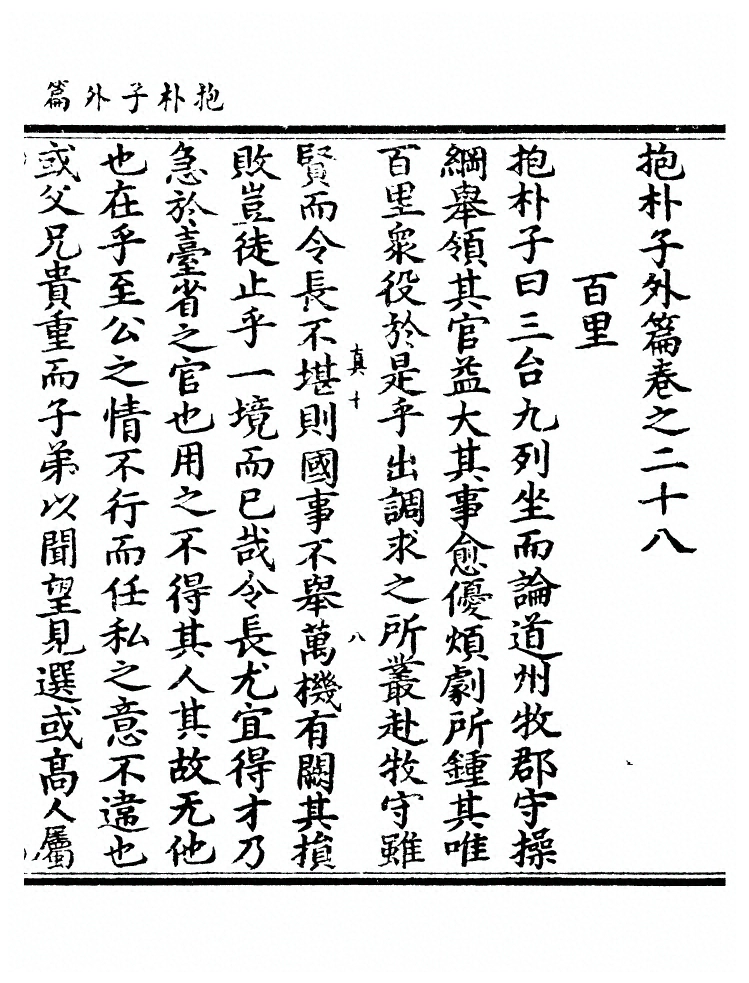 抱朴子外篇
抱朴子外篇卷之二十八
百里
抱朴子曰三台九列坐而論道州牧郡守操
綱舉領其官益大其事愈優煩劇所鍾其唯
百里衆役於是乎出調求之所叢赴牧守雖
真十
八
賢而令長不堪則國事不舉萬機有闕其損
敗豈徒止乎一境而已哉令長尤宜得才乃
急於臺省之官也用之不得其人其故无他
也在乎至公之情不行而任私之意不違也
或父兄貴重而子弟以聞望見選或高人屬